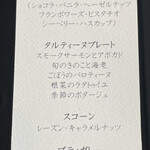 (ショコラ・バニラ・ヘーゼルナッツ
フランボワーズ・ピスタチオ
シーベリー・ハスカップ)
タルティーヌプレート
スモークサーモンとアボカド
旬のきのこと海老
ごぼうのバロティーヌ
根菜のラタトゥイユ
季節のポタージュ
スコーン
レーズン・キャラメルナッツ